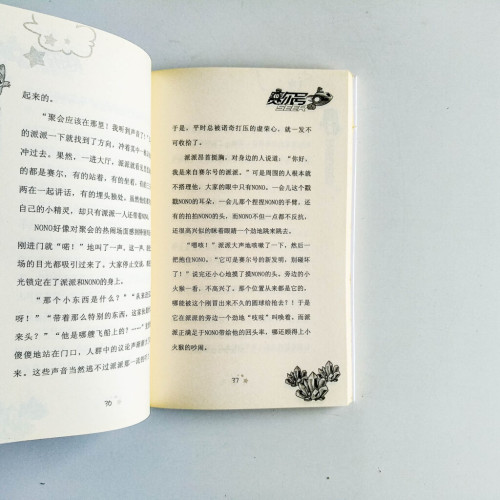 起来的。
“聚会应该在那里！我听到声音了！”
派派一下就找到了方向，冲着其中一
冲过去。果然，一进大厅，派派就看
的都是赛尔，有的站着，有的坐着，
两在一起讲话，有的埋头猴处，
自己的小精灵，却只有派派一人还带着NO
NONO好像对聚会的热闹场面感到特
刚进门就“喏！”地叫了一声。这
场的目光都吸引过来了，大家停止交谈，
光锁定在了派派和NONO的身上。
“那个小东西是什么？”“从来没
呀！”“带着那么特别的东西，这家伙
来头？”“他是哪艘飞船上的？……”
傻傻地站在门口，人群中的议论声
来。这些声音当然逃不过派派那一
76
赛尔号
SEER
于是，平时总被诺奇打压的虚荣心，就一发不
可收拾了。
派派昂首挺胸，对身边的人说道：“你好，
我是来自赛尔号的派派。”可是周围的人根本就
不搭理他，大家的眼中只有NONO，一会儿这个戳
戳NONO的耳朵，一会儿那个捏捏NONO的手臂，还
有的拍拍NONO的头，而NONO不但一点都不反抗，
还很高兴似的眯着眼睛一个劲地跳来跳去。
“嗯咳！”派派大声地咳嗽了一下，然后一
把抱住NONO。“它可是赛尔号的新发明，别碰坏
了！”说完还小心地摸了摸NONO的头。旁边的小
火猴一看，不高兴了。那个位置从来都是它的，
哪能被这个刚冒出来不久的圆球给抢去？！于是
它在派派的旁边一个劲地“吱吱”叫唤着。而派
派正满足于NONO带给他的回头率，哪还顾得上小
火猴的吵闹。
77